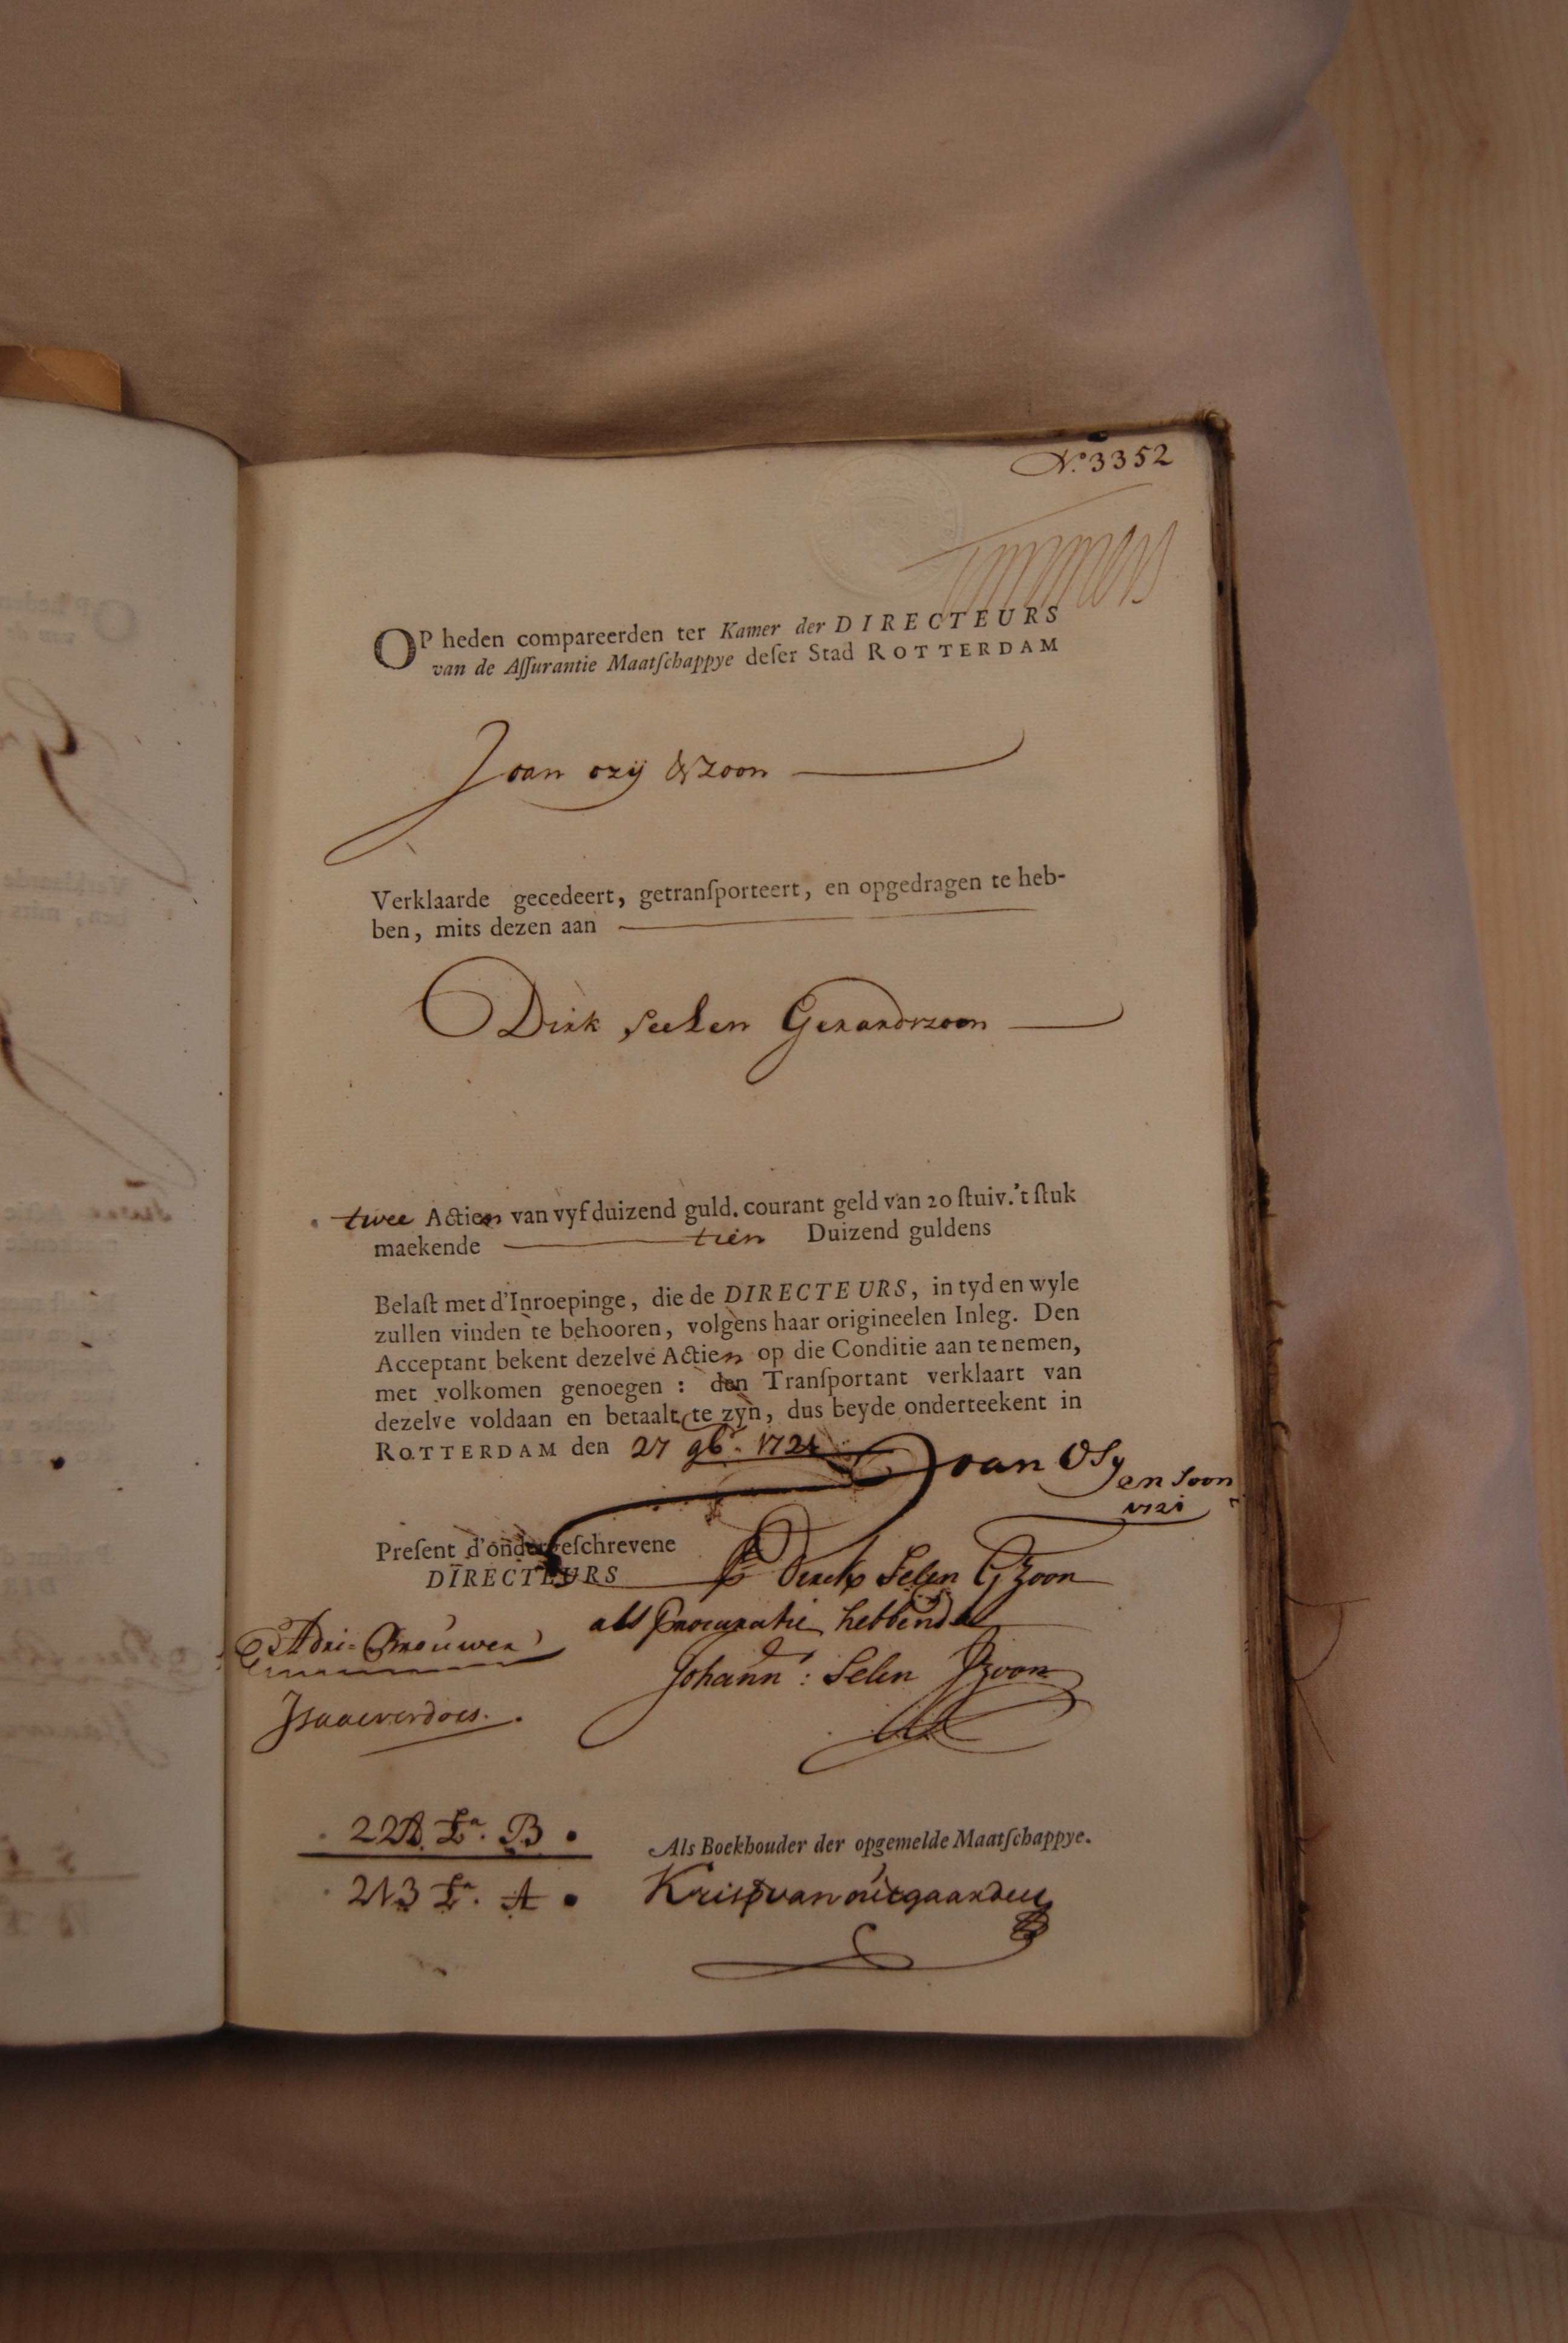 N.º 3352
OP heden compareerden ter Kamer der DIRECTEURS
van de Aſſurantie Maatſchappye deſer Stad ROTTERDAM
Joan ozij & zoon
Verklaarde gecedeert, getranſporteert, en opgedragen te heb-
ben, mits dezen aan
Dirk Seelen Gerardszoon
twee Actien van vyf duizend guld. courant geld van 20 ſtuiv. 't ſtuk
maekende tien Duizend guldens
Belaſt met d'Inroepinge, die de DIRECTEURS, in tyd en wyle
zullen vinden te behooren, volgens haar origineelen Inleg. Den
Acceptant bekent dezelve Actien op die Conditie aan te nemen,
met volkomen genoegen: den Tranſportant verklaart van
dezelve voldaan en betaalt te zyn, dus beyde onderteekent in
ROTTERDAM den 27 9br. 1721
Joan Osy
en Soon
1721
Preſent d'ondergeſchrevene
DIRECTEURS
Derck Selen GZoon
als Procuratie hebbende
Johann: Selen Jzoon
Adri= Brouwer
Isaacverdoes.
22A La. B.
213 La. A.
Als Boekhouder der opgemelde Maatſchappye.
Krisp van uitgaarden